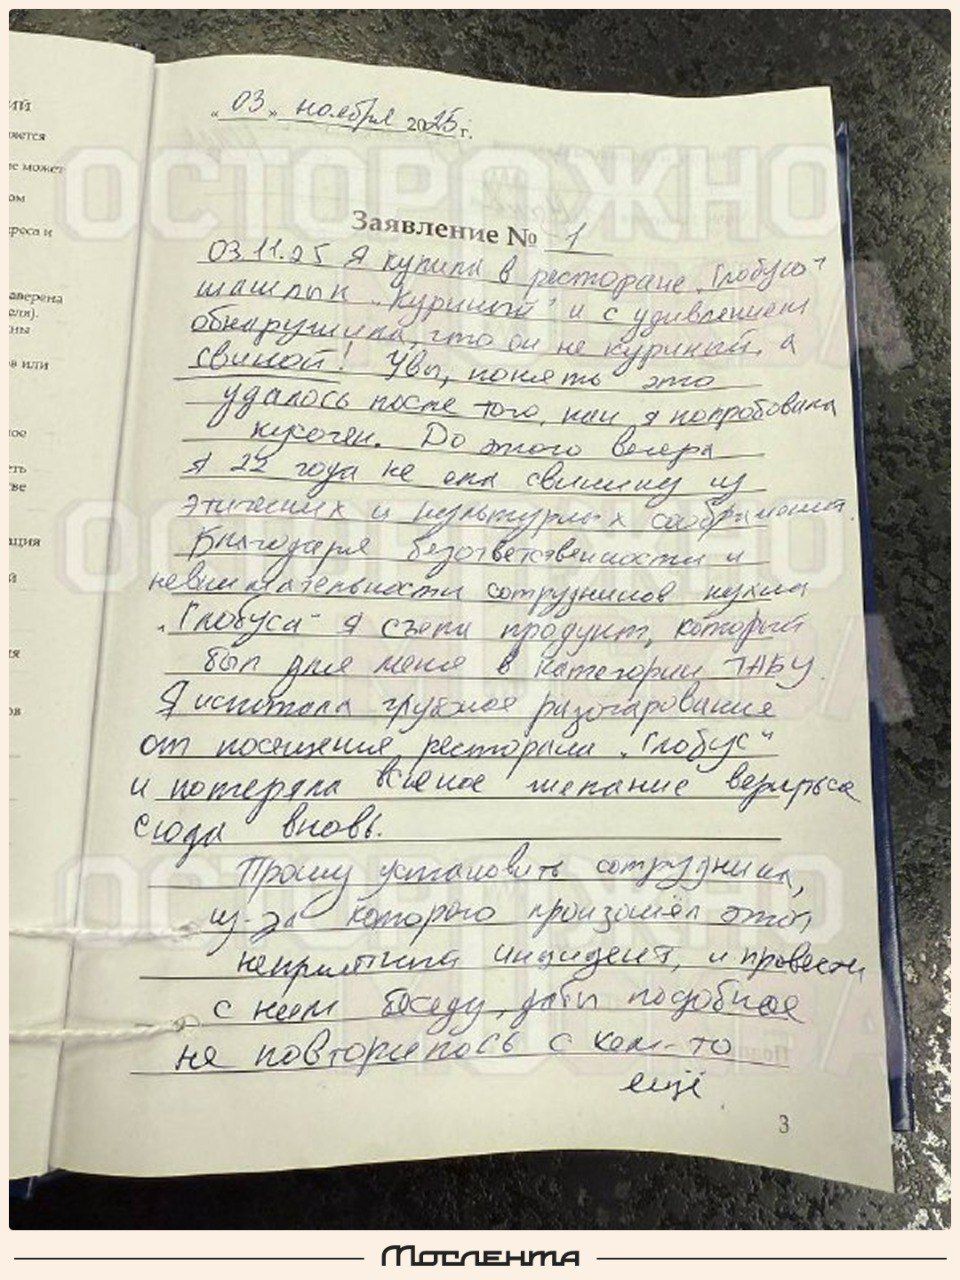 ий
яется
не может
ом
проса и
заверена
еля).
ны
в или
ное
еть
стве
ация
й
ия
ов
« 03 » ноября 2025 г.
Заявление № 1
03.11.25 Я купила в ресторане „Глобус“
шашлык „Куриный“ и с удивлением
обнаружила, что он не куриный, а
свиной! Увы, понять это
удалось после того, как я попробовала
кусочек. До этого вечера
я 22 года не ела свинину из
этических и культурных соображений.
Благодаря безответственности и
невнимательности сотрудников кухни
„Глобуса“ я съела продукт, который
был для меня в категории ТАБУ.
Я испытала глубокое разочарование
от посещения ресторана „Глобус“
и потеряла всякое желание вернуться
сюда вновь.
Прошу установить сотрудника,
из-за которого произошёл этот
неприятный инцидент, и провести
с ним беседу, дабы подобное
не повторилось с кем-то
ещё
3
ОСТОРОЖНО
МОСКВА
ОСТОРОЖНО
МОСКВА
ОСТОРОЖНО
МОСКВА
МОСЛЕНТА